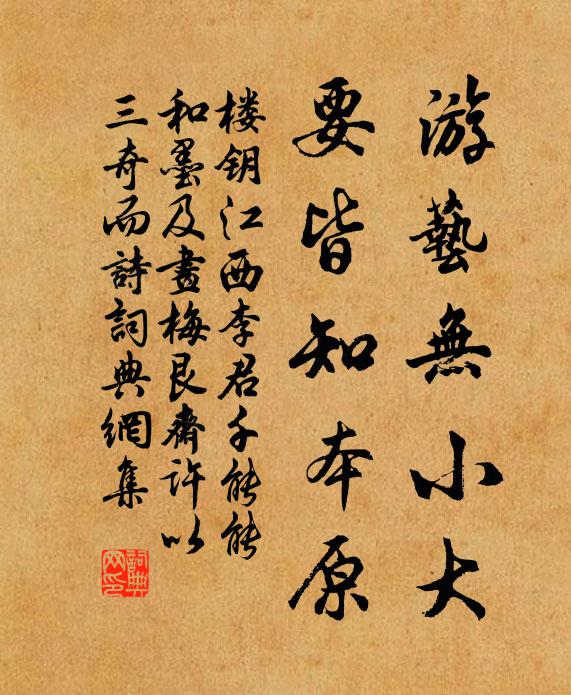 游藝無小大
要皆知本原
楼钥江西李君千能能
和墨及畫梅艮齋许以
三奇而詩詞典網集
詞典网印